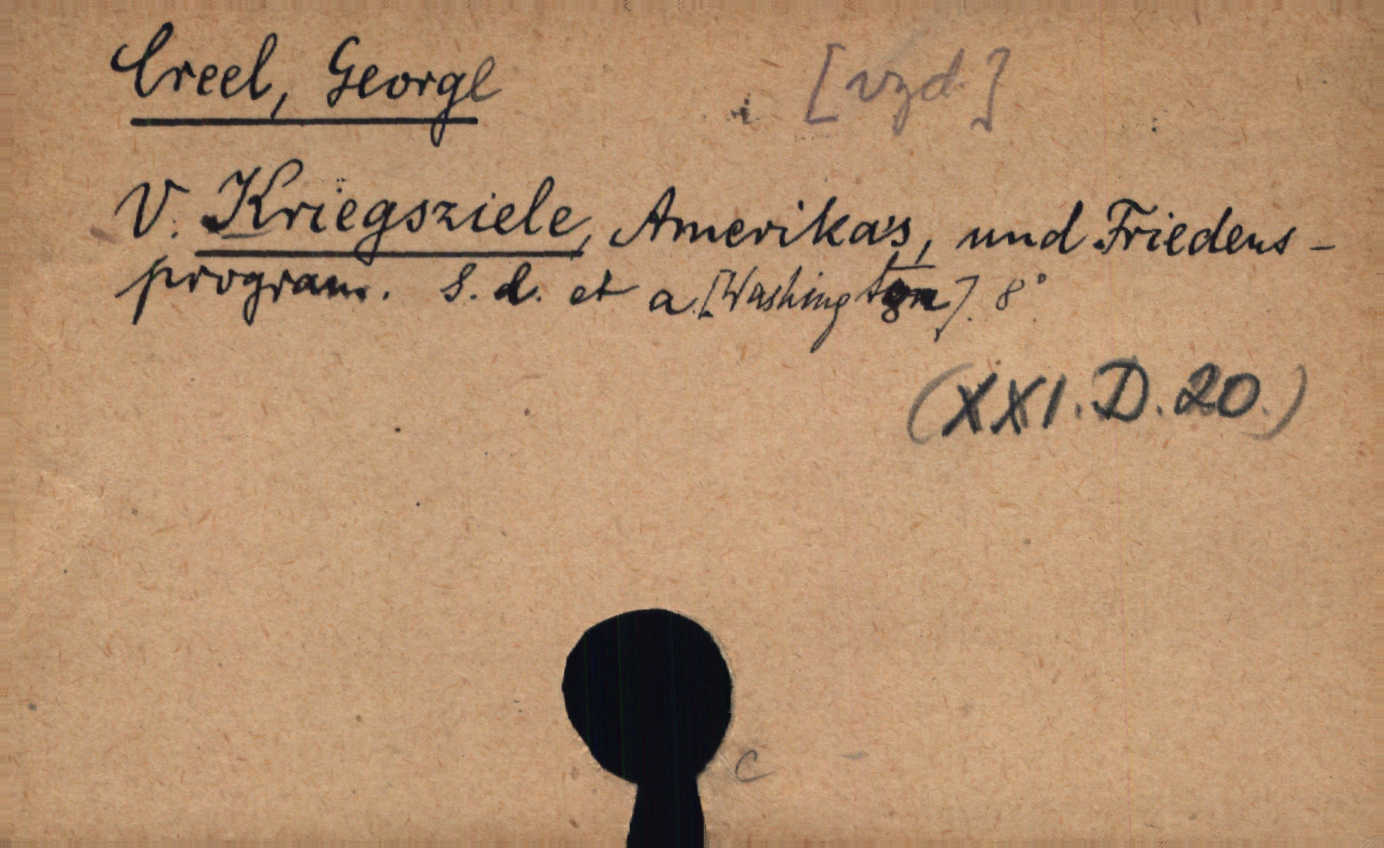 Creel, George [vzd.]
V. Kriegsziele, Amerika's, und Friedens-
program. S. d. et a. [Washington]. 8°
(XXI. D. 20.)
c